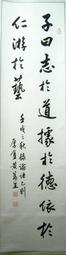 子曰志於道據於德依於
仁游於藝
壬戌之秋錄論語之則